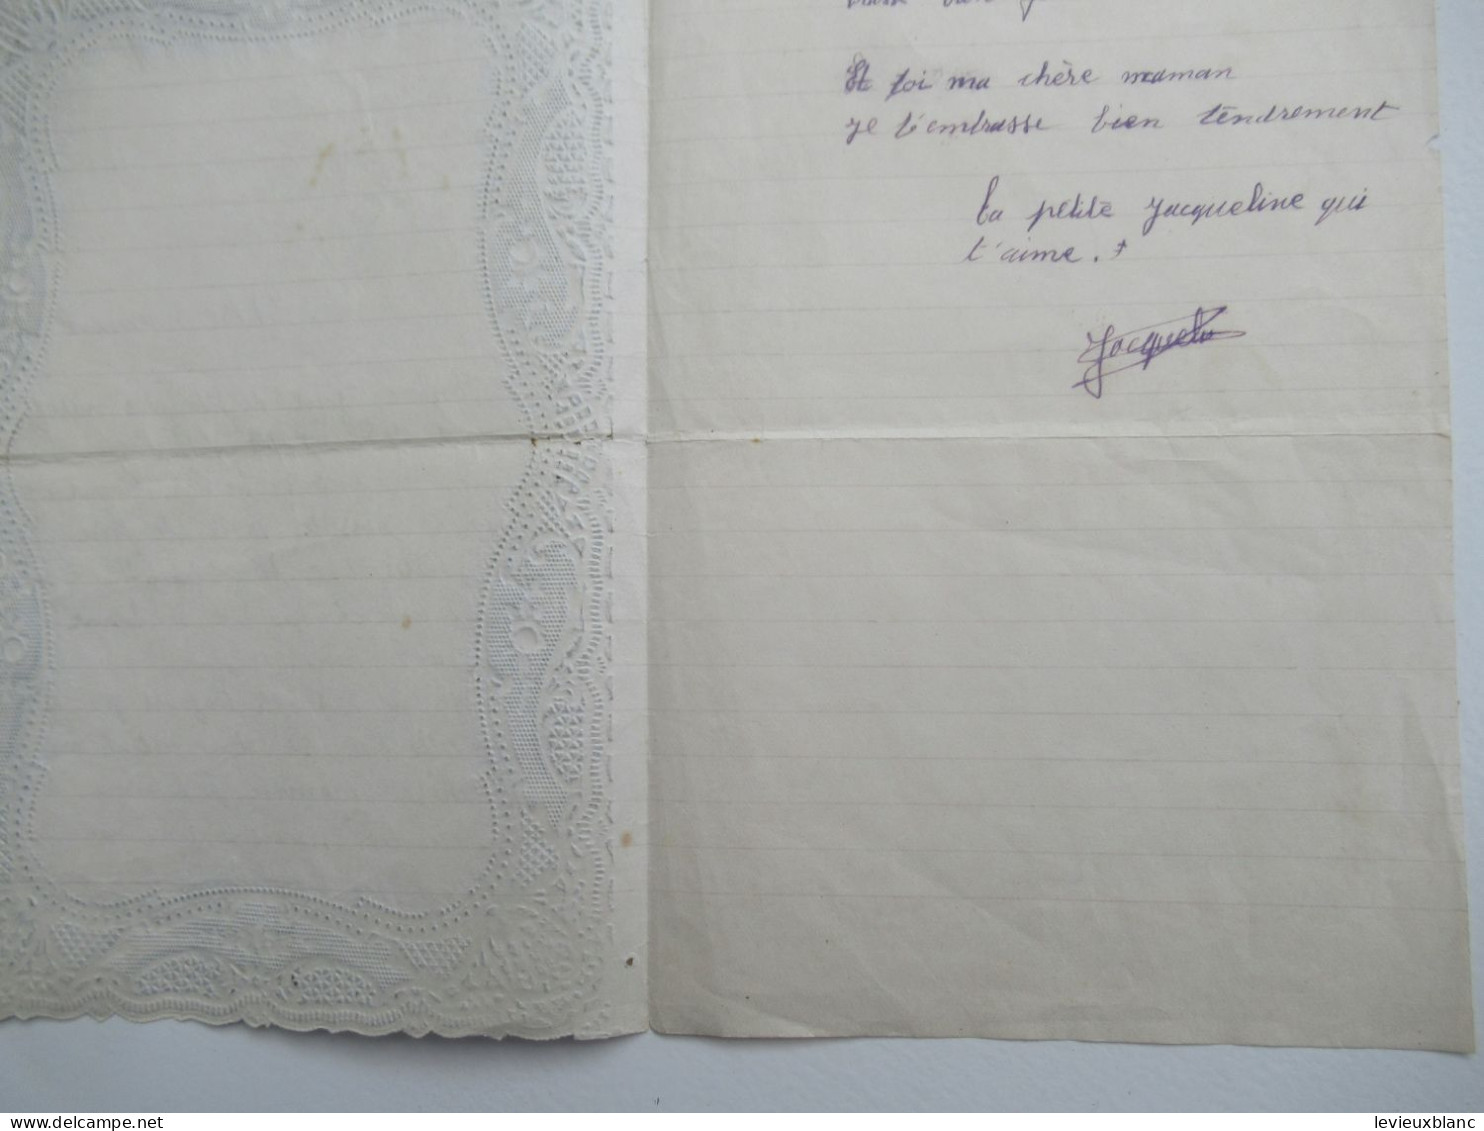 bien
Et toi ma chère maman
je t'embrasse bien tendrement
ta petite Jacqueline qui
t'aime.
Jacqueline
delcampe.net
levieuxblanc